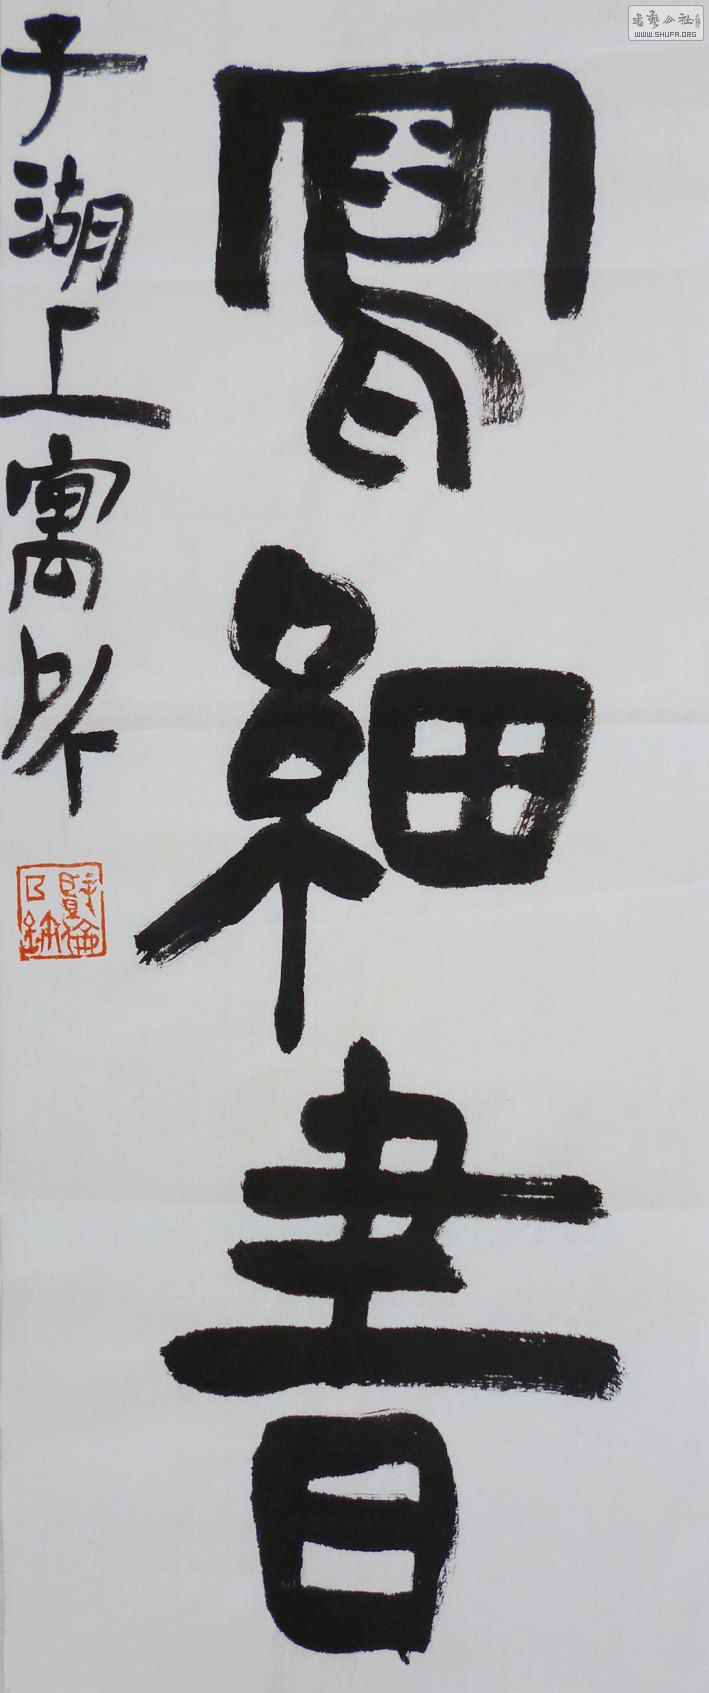 細書
于湖上寓所
书艺公社
WWW.SHUFA.ORG